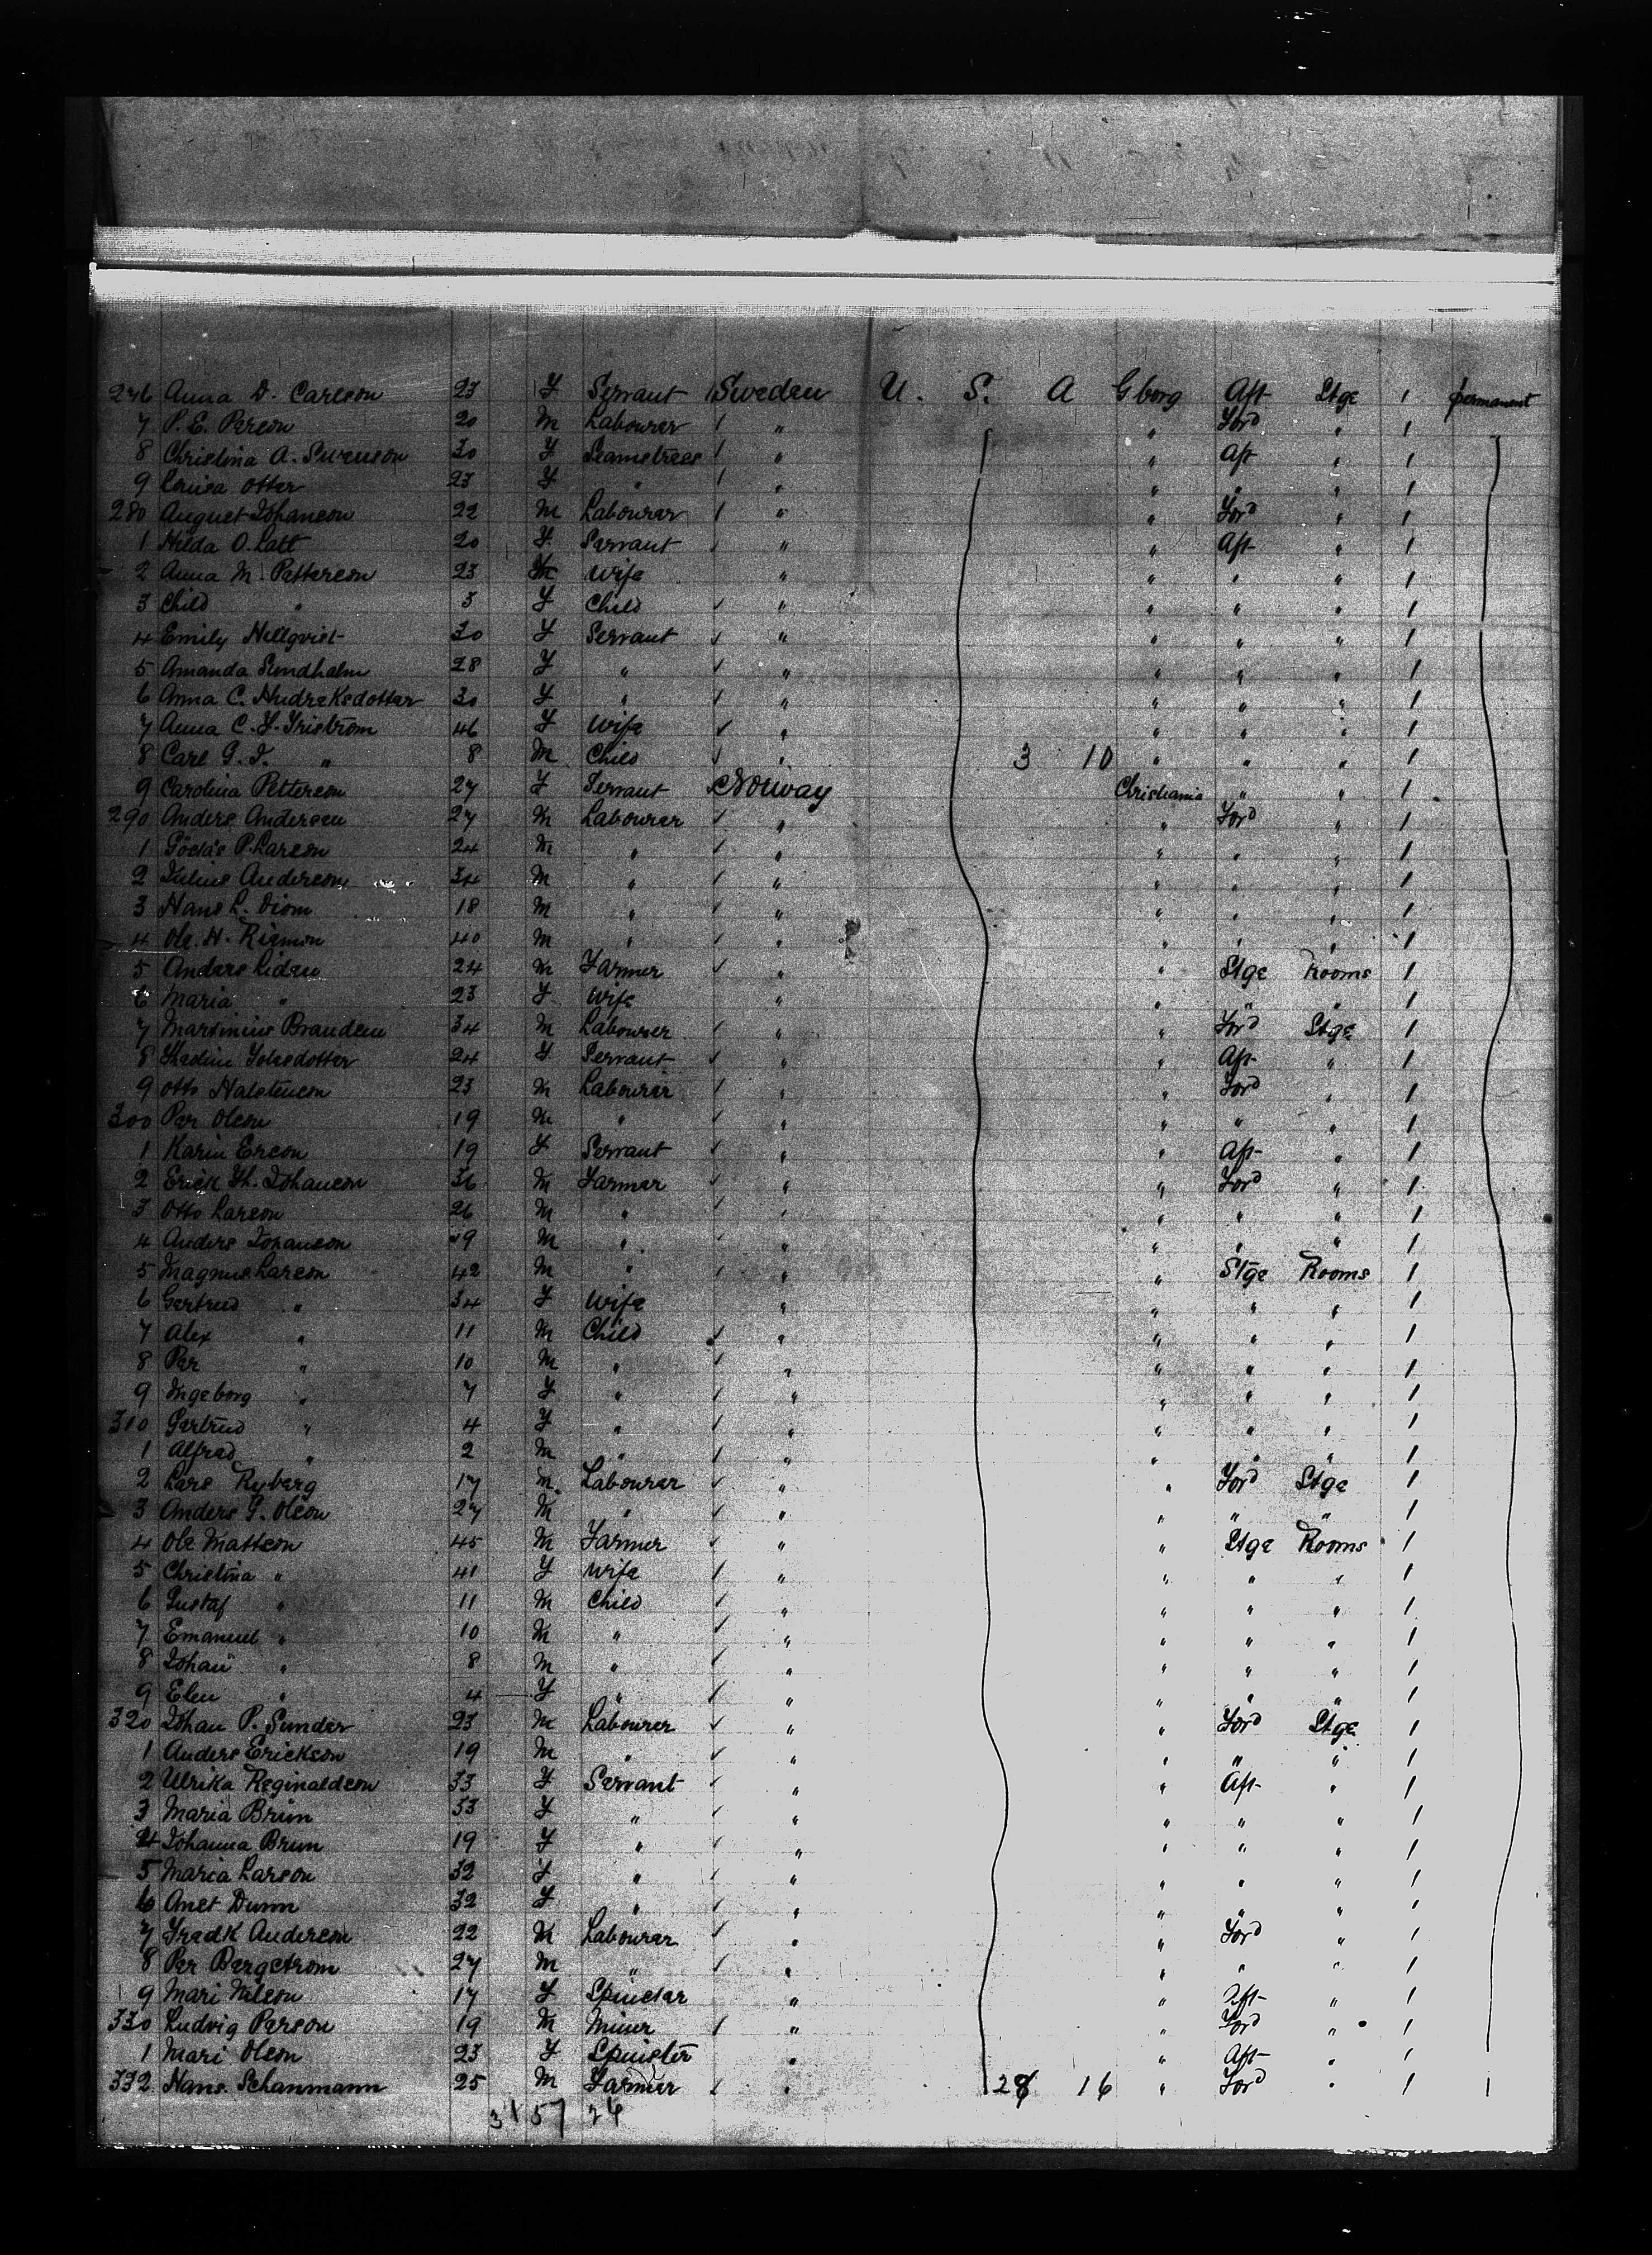 276 Anna D. Carlson 23 F Servant Sweden U. S. A Gborg Aft Stge 1 permanent
7 P. E. Person 20 M Labourer " " Ford " 1
8 Christina A. Swenson 30 F Seamstress " " Aft " 1
9 Louisa Otter 23 F " " " " " 1
280 August Johanson 22 M Labourer " " Ford " 1
1 Hilda O. Latt 20 F Servant " " Aft " 1
2 Anna M. Petterson 23 Wife " " " " 1
3 Child " 3 F Child " " " " 1
4 Emily Hellqvist 30 F Servant " " " " 1
5 Amanda Sundholm 28 F " " " " " 1
6 Anna C. Hndreksdotter 30 F " " " " " 1
7 Anna C. F. Friström 46 F Wife " " " " 1
8 Carl G. F. " 8 M Child " 3 10 " " " 1
9 Carolina Petterson 27 F Servant Norway Christiania " " 1
290 Anders Andersen 27 M Labourer " " Ford " 1
1 P. Larson 24 M " " " " " 1
2 Julius Anderson 34 M " " " " " 1
3 Hans L. 18 M " " " " " 1
4 Ole H. 40 M " " " " " 1
5 Anders Liden 24 M Farmer " " Stge Rooms 1
6 Maria " 23 F Wife " " " " 1
7 Martinius Branden 34 M Labourer " " Ford Stge 1
8 24 F Servant " " Aft " 1
9 Otto Halstenson 23 M Labourer " " Ford " 1
300 Per Olson 19 M " " " " " 1
1 Karin Erson 19 F Servant " " Aft " 1
2 Erick Th. Johanson 36 M Farmer " " Ford " 1
3 Otto Larson 26 M " " " " " 1
4 Anders Johanson 19 M " " " " " 1
5 Magnus Larson 42 M " " " Stge Rooms 1
6 Gertrud " 34 F Wife " " " " 1
7 Alex " 11 M Child " " " " 1
8 Per " 10 M " " " " " 1
9 Ingeborg " 7 F " " " " " 1
310 Gertrud " 4 F " " " " " 1
1 Alfred " 2 M " " " " " 1
2 Lars Ryberg 17 M Labourer " " Ford Stge 1
3 Anders G. Olson 27 M " " " " " 1
4 Ole Mattson 45 M Farmer " " Stge Rooms 1
5 Christina " 41 F Wife " " " " 1
6 Gustaf " 11 M Child " " " " 1
7 Emanuel " 10 M " " " " " 1
8 Johan " 8 M " " " " " 1
9 Elen " 4 F " " " " " 1
320 Johan P. Sunder 23 M Labourer " " Ford Stge 1
1 Anders Erickson 19 M " " " " " 1
2 Ulrika Reginaldson 33 F Servant " " Aft " 1
3 Maria Brun 33 F " " " " " 1
4 Johanna Brun 19 F " " " " " 1
5 Maria Larson 32 F " " " " " 1
6 Anet Dunn 32 F " " " " " 1
7 Fredk Anderson 22 M Labourer " " Ford " 1
8 Per Bergstrom 27 M " " " " " 1
9 Mari Nilson 17 F Spinster " " Aft " 1
330 Ludvig Person 19 M Miner " " Ford " 1
1 Mari Olson 23 F Spinster " " Aft " 1
332 Hans Schanmann 25 M Farmer " 16 " Ford " 1 1
31 57 26